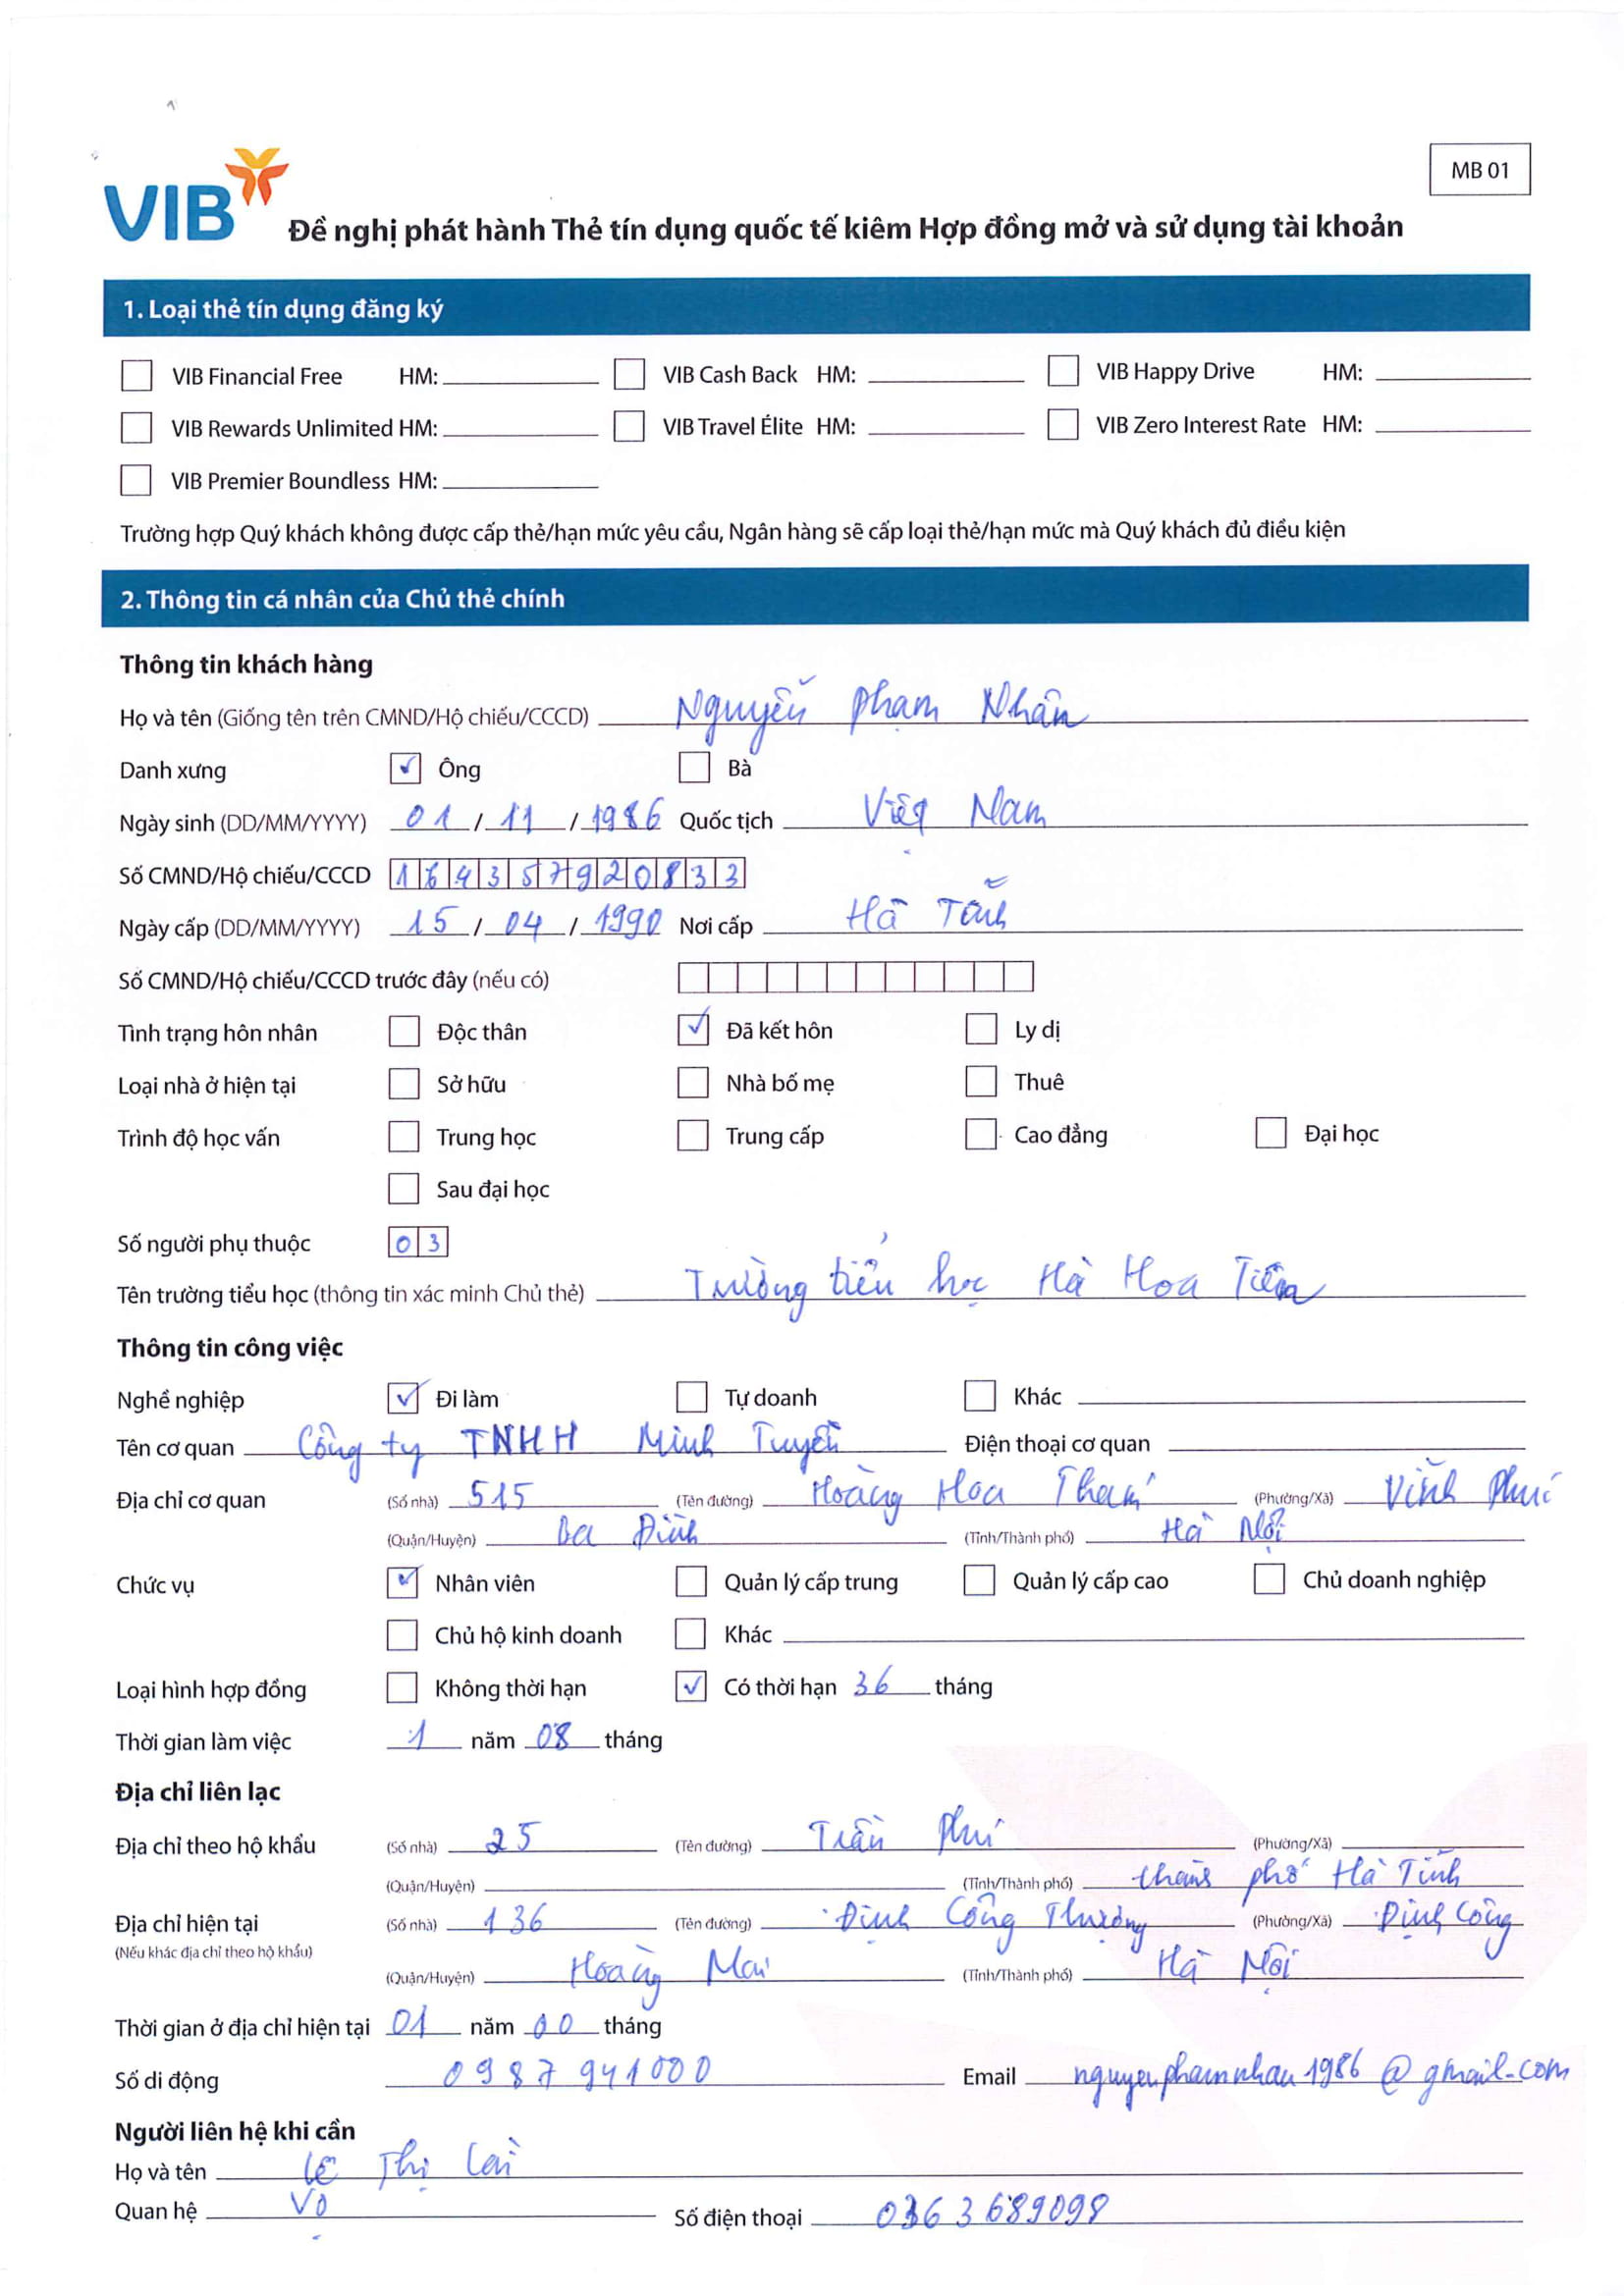 MB 01
VIB
Đề nghị phát hành Thẻ tín dụng quốc tế kiêm Hợp đồng mở và sử dụng tài khoản
1. Loại thẻ tín dụng đăng ký
VIB Financial Free HM: VIB Cash Back HM: VIB Happy Drive HM:
VIB Rewards Unlimited HM: VIB Travel Élite HM: VIB Zero Interest Rate HM:
VIB Premier Boundless HM:
Trường hợp Quý khách không được cấp thẻ/hạn mức yêu cầu, Ngân hàng sẽ cấp loại thẻ/hạn mức mà Quý khách đủ điều kiện
2. Thông tin cá nhân của Chủ thẻ chính
Thông tin khách hàng
Họ và tên (Giống tên trên CMND/Hộ chiếu/CCCD) Nguyễn Phạm Nhân
Danh xưng Ông Bà
Ngày sinh (DD/MM/YYYY) 01 / 11 / 1986 Quốc tịch Việt Nam
Số CMND/Hộ chiếu/CCCD 164357920833
Ngày cấp (DD/MM/YYYY) 15 / 04 / 1990 Nơi cấp Hà Tĩnh
Số CMND/Hộ chiếu/CCCD trước đây (nếu có)
Tình trạng hôn nhân Độc thân Đã kết hôn Ly dị
Loại nhà ở hiện tại Sở hữu Nhà bố mẹ Thuê
Trình độ học vấn Trung học Trung cấp Cao đẳng Đại học
Sau đại học
Số người phụ thuộc 03
Tên trường tiểu học (thông tin xác minh Chủ thẻ) Trường tiểu học Hà Hoa Tiên
Thông tin công việc
Nghề nghiệp Đi làm Tự doanh Khác
Tên cơ quan Công ty TNHH Minh Tuyến Điện thoại cơ quan
Địa chỉ cơ quan (Số nhà) 515 (Tên đường) Hoàng Hoa Thám (Phường/Xã) Vĩnh Phú
(Quận/Huyện) Ba Đình (Tỉnh/Thành phố) Hà Nội
Chức vụ Nhân viên Quản lý cấp trung Quản lý cấp cao Chủ doanh nghiệp
Chủ hộ kinh doanh Khác
Loại hình hợp đồng Không thời hạn Có thời hạn 36 tháng
Thời gian làm việc 1 năm 08 tháng
Địa chỉ liên lạc
Địa chỉ theo hộ khẩu (Số nhà) 25 (Tên đường) Trần Phú (Phường/Xã)
(Quận/Huyện) (Tỉnh/Thành phố) thành phố Hà Tĩnh
Địa chỉ hiện tại (Số nhà) 136 (Tên đường) Định Công Thượng (Phường/Xã) Định Công
(Nếu khác địa chỉ theo hộ khẩu)
(Quận/Huyện) Hoàng Mai (Tỉnh/Thành phố) Hà Nội
Thời gian ở địa chỉ hiện tại 01 năm 00 tháng
Số di động 0987941000 Email nguyenphamnhan1986@gmail.com
Người liên hệ khi cần
Họ và tên Lê Thị Lài
Quan hệ Vợ Số điện thoại 0363689098